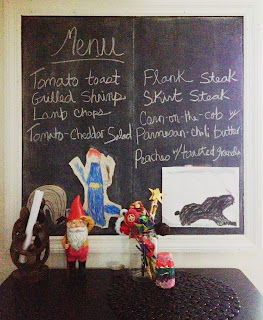 Menu
Tomato toast
Grilled Shrimp
Lamb chops
Tomato-Cheddar Salad
Flank Steak
Skirt Steak
Corn-on-the-cob w/
Parmesan-chili butter
Peaches w/toasted